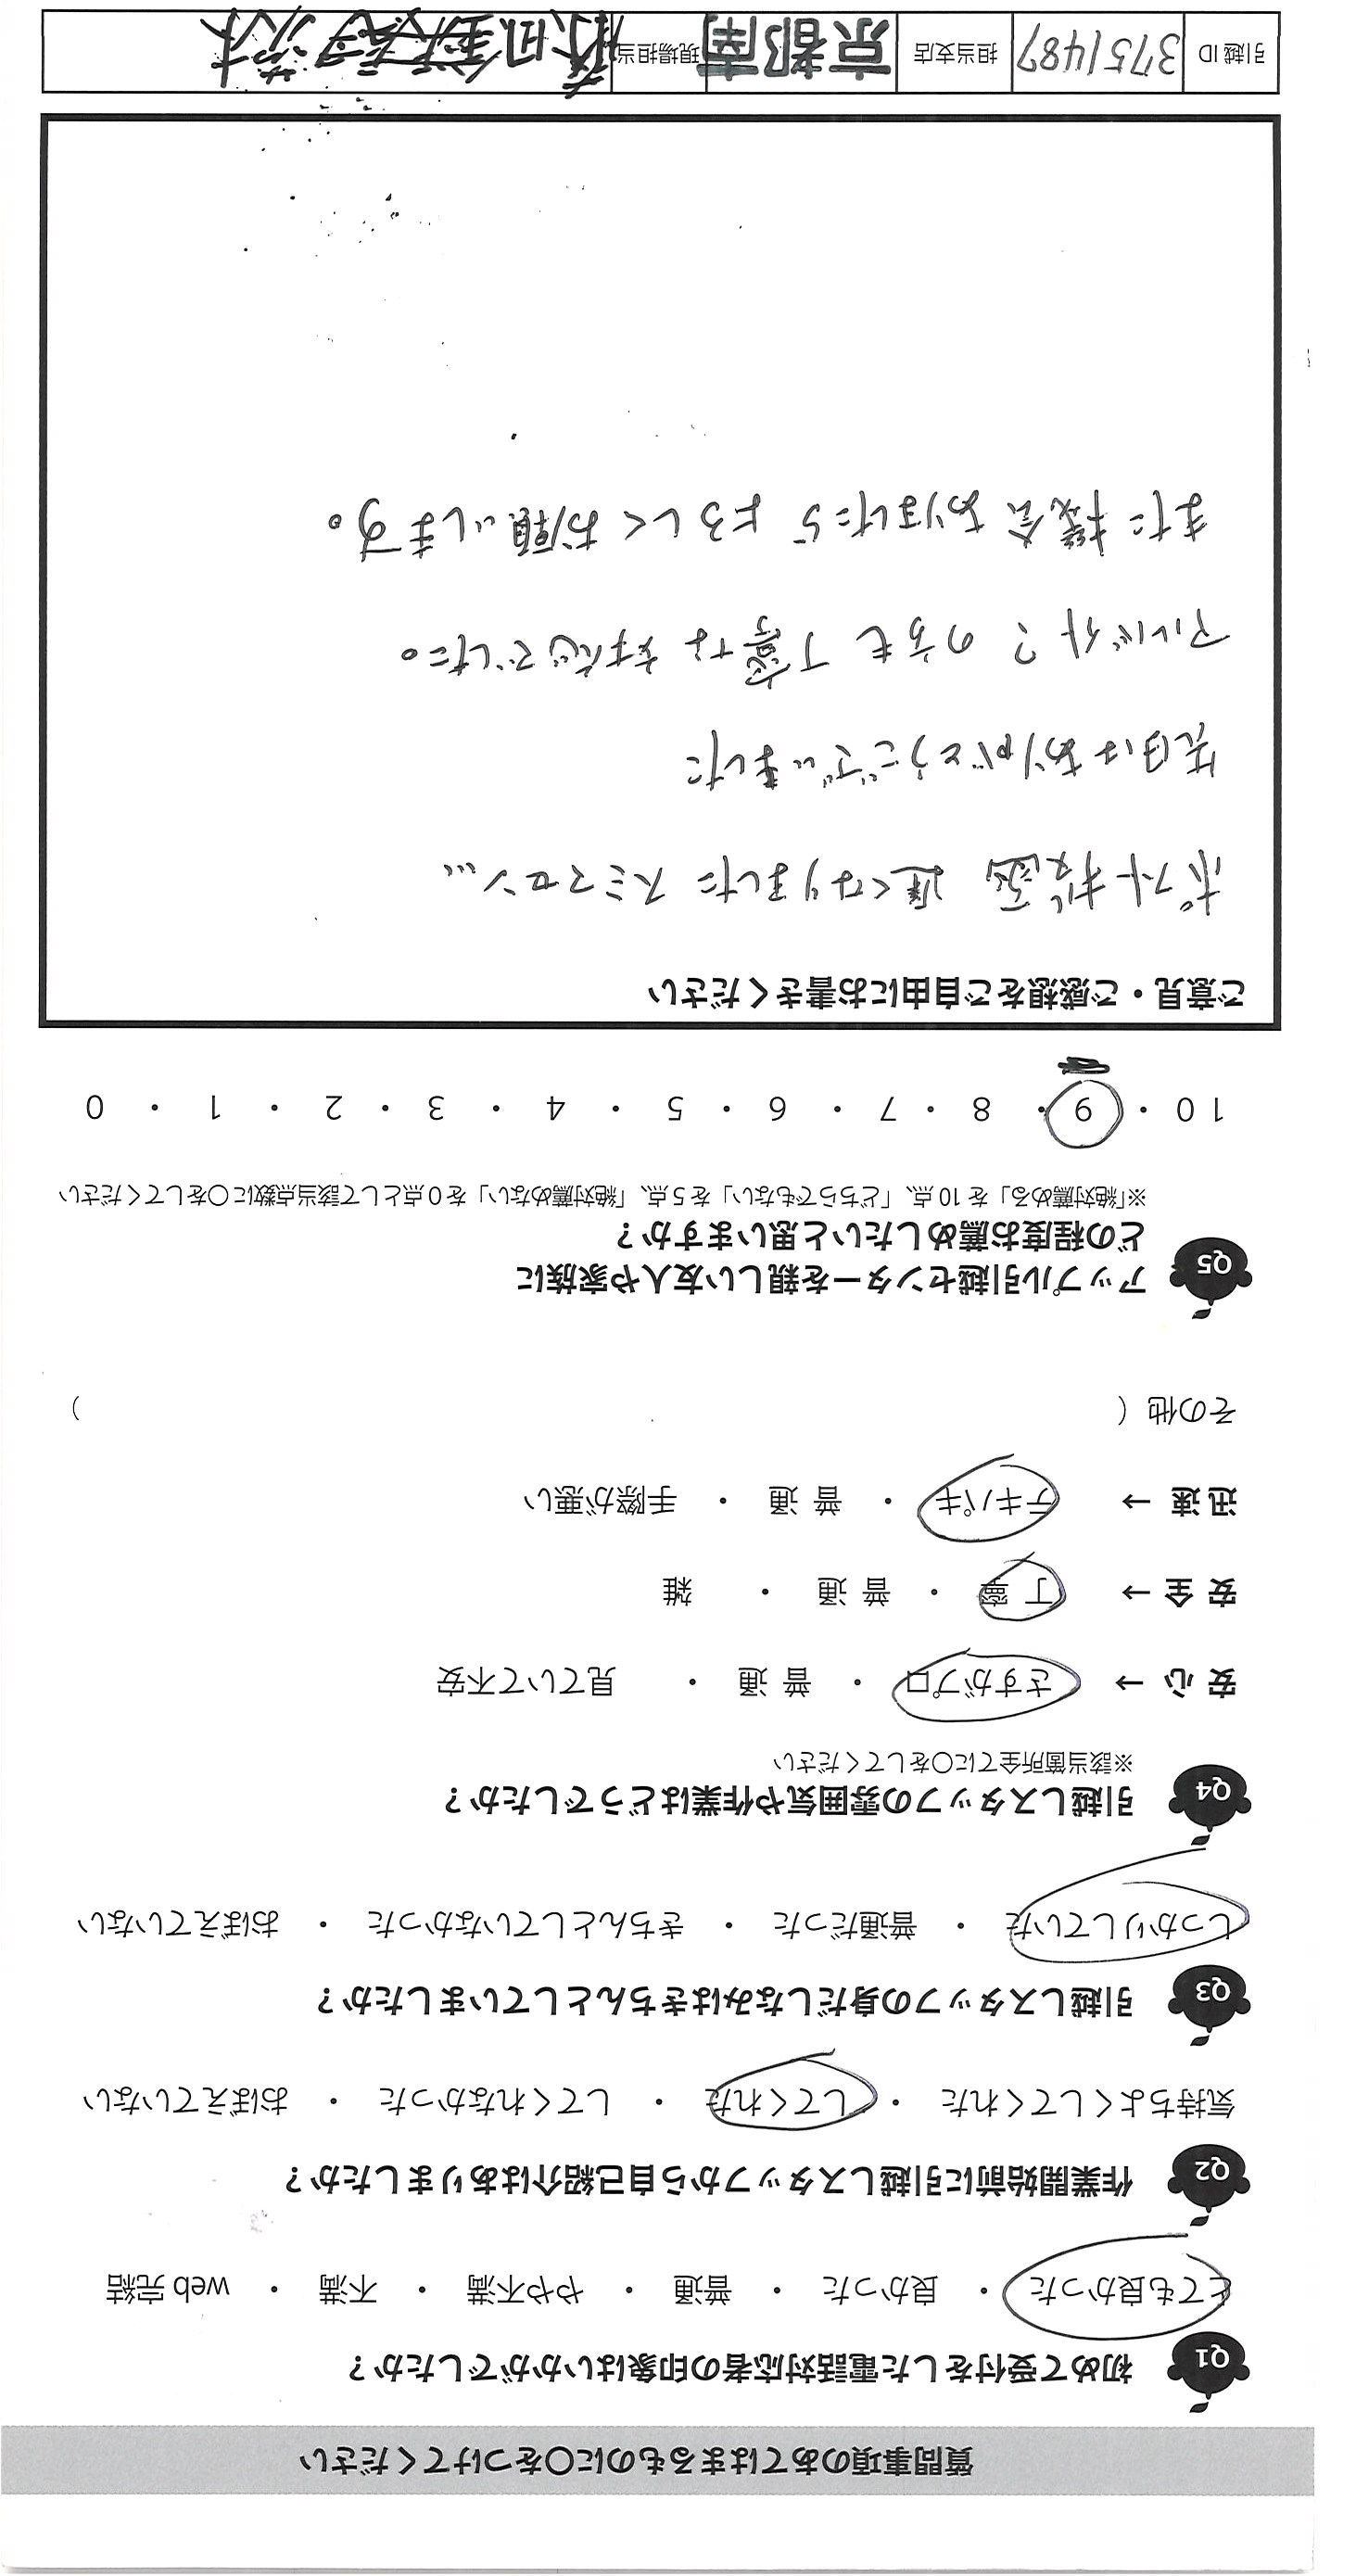 質問事項のあてはまるものに○をつけてください
Q1 初めて受付をした電話対応者の印象はいかがでしたか？
とても良かった ・ 良かった ・ 普通 ・ やや不満 ・ 不満 ・ web 完結
Q2 作業開始前に引越しスタッフから自己紹介はありましたか？
気持ちよくしてくれた ・ してくれた ・ してくれなかった ・ おぼえていない
Q3 引越しスタッフの身だしなみはきちんとしていましたか？
しっかりしていた ・ 普通だった ・ きちんとしていなかった ・ おぼえていない
Q4 引越しスタッフの雰囲気や作業はどうでしたか？
※該当箇所全てに○をしてください
安 心 → さすがプロ ・ 普 通 ・ 見ていて不安
安 全 → 丁 寧 ・ 普 通 ・ 雑
迅 速 → テキパキ ・ 普 通 ・ 手際が悪い
その他（ ）
Q5 アップル引越センターを親しい友人や家族に
どの程度お薦めしたいと思いますか？
※「絶対薦める」を 10 点、「どちらでもない」を 5 点、「絶対薦めない」を 0 点として該当点数に○をしてください
10 ・ 9 ・ 8 ・ 7 ・ 6 ・ 5 ・ 4 ・ 3 ・ 2 ・ 1 ・ 0
ご意見・ご感想をご自由にお書きください
ポスト投函 遅くなりました スミマセン…
先日はありがとうございました
アルバイト？の方も丁寧な対応でした。
また機会ありましたらよろしくお願いします。
引越 ID 3751487 担当支店 京都南 現場担当